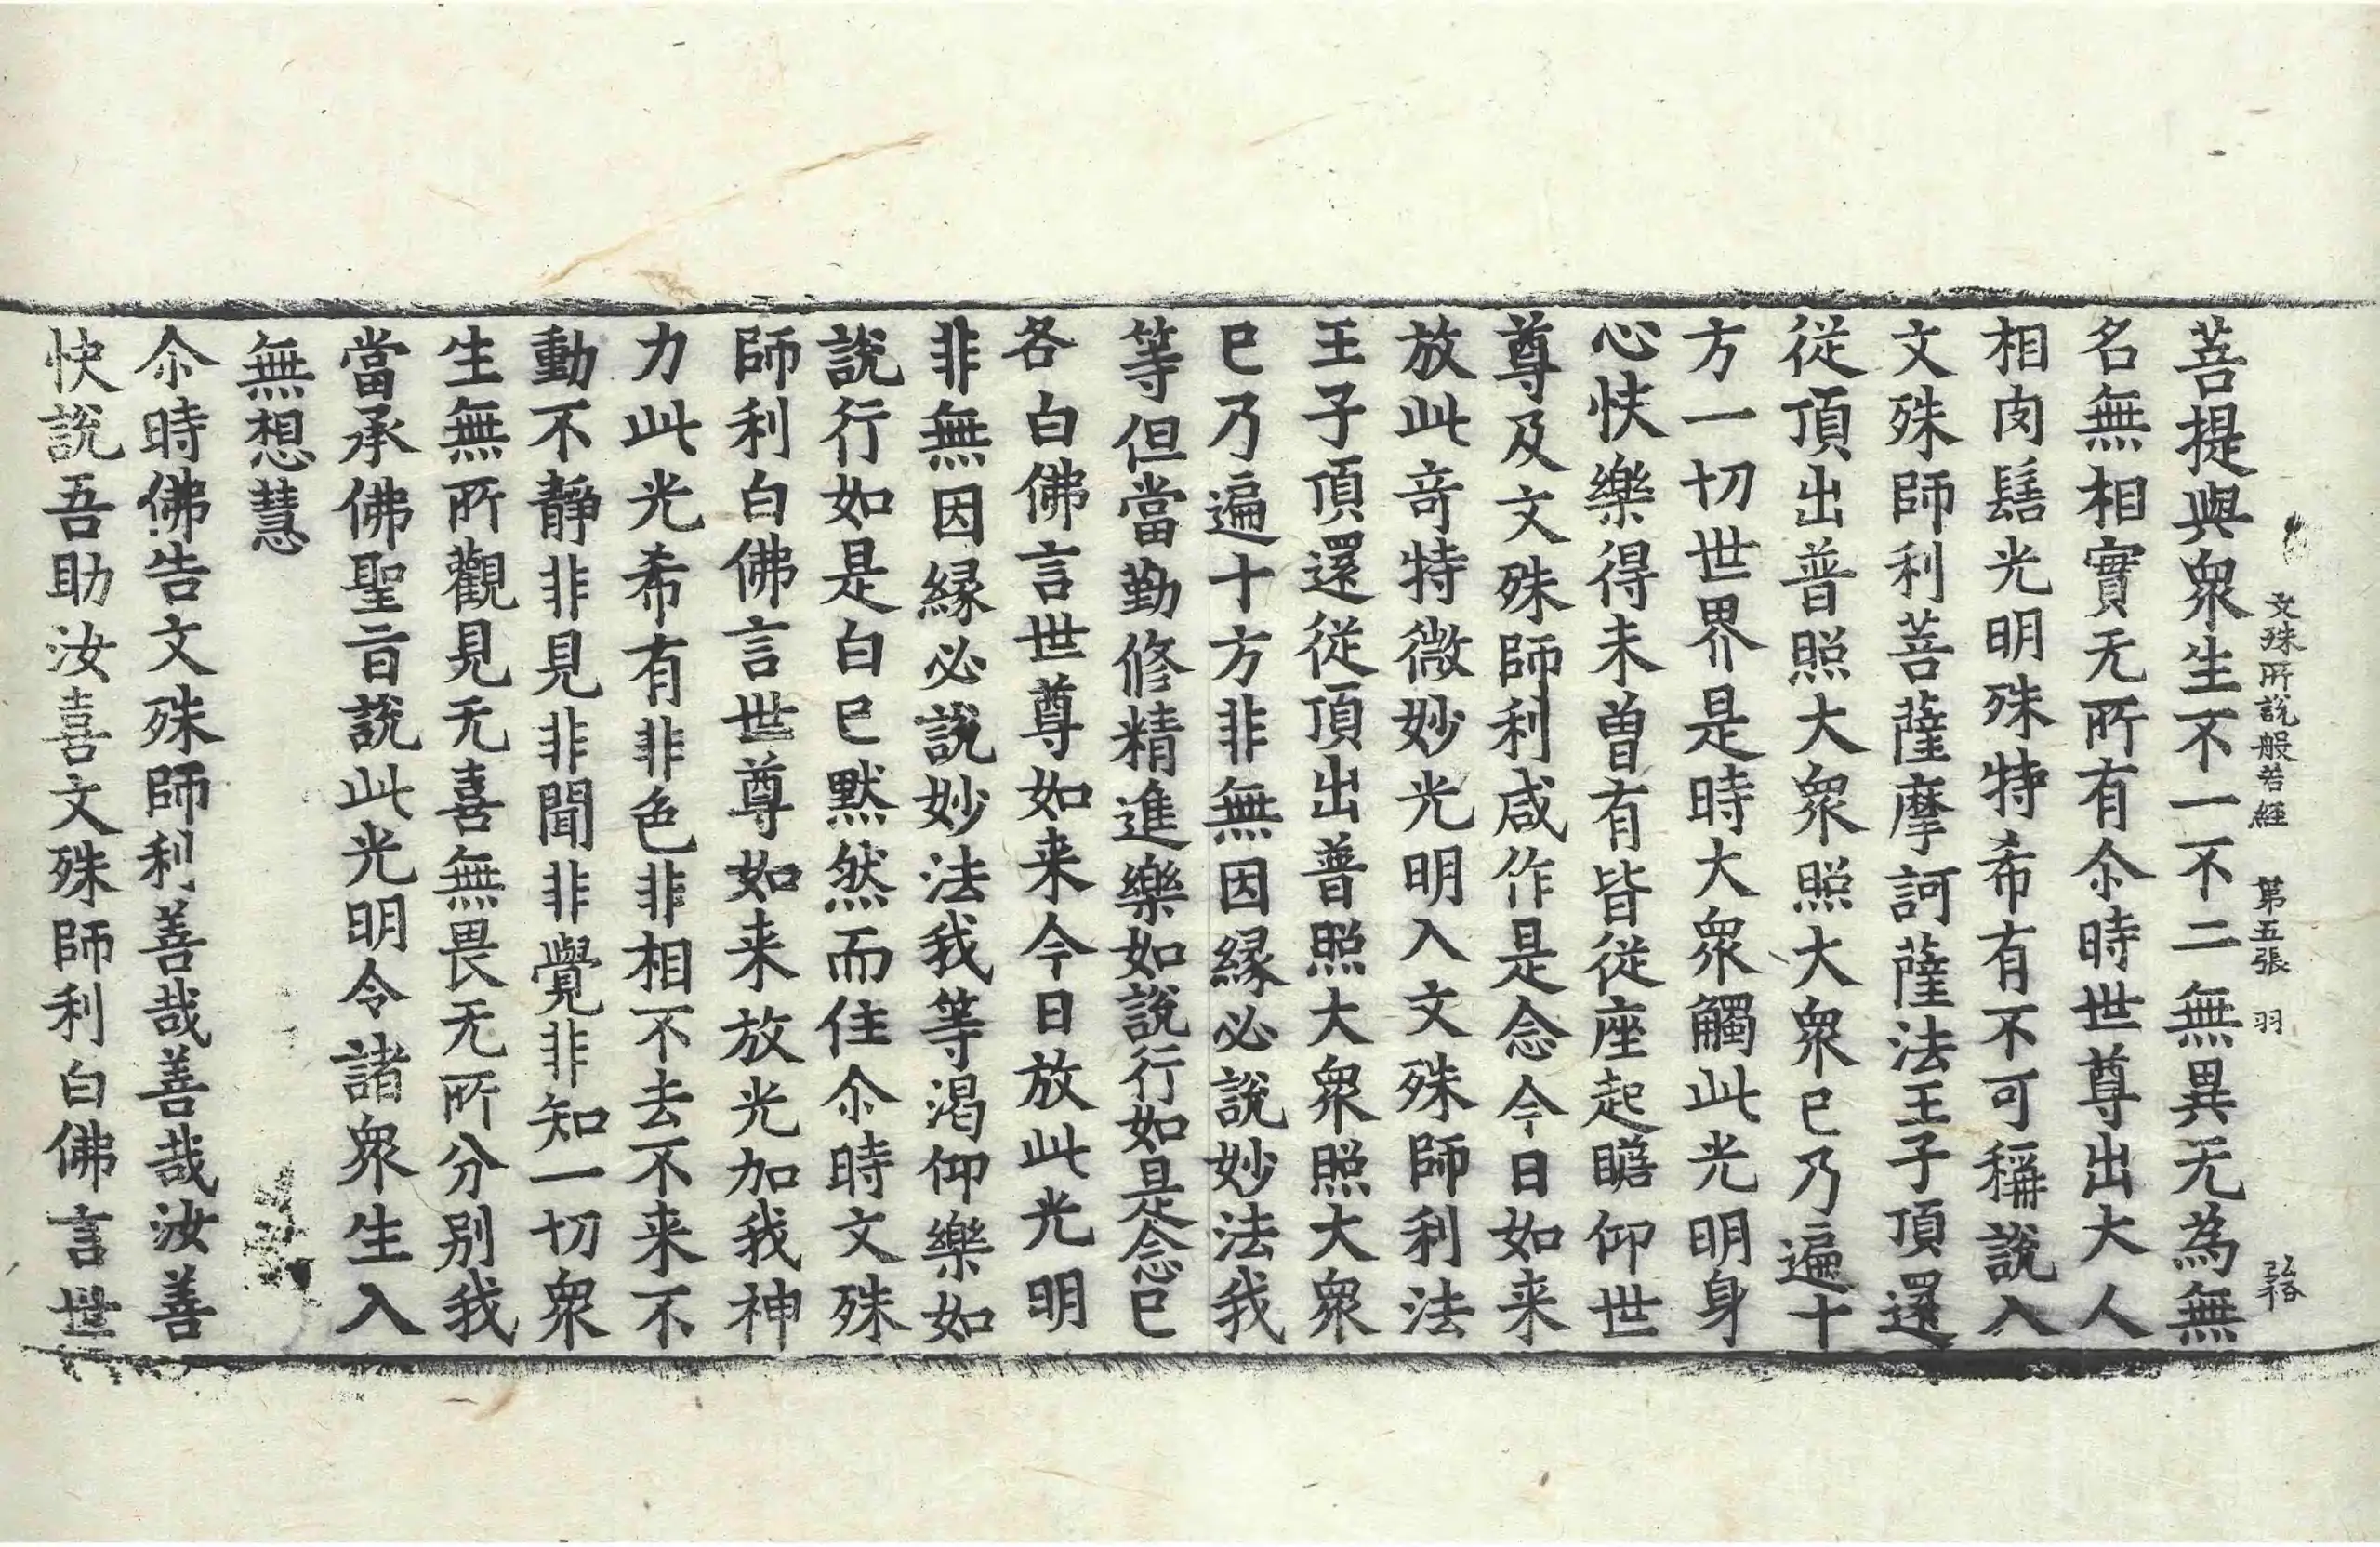 文殊所說般若經　第五張　羽
菩提與衆生不一不二無異无為無
名無相實无所有尒時世尊出大人
相肉髻光明殊特希有不可稱說入
文殊師利菩薩摩訶薩法王子頂還
從頂出普照大衆照大衆已乃遍十
方一切世界是時大衆觸此光明身
心快樂得未曾有皆從座起瞻仰世
尊及文殊師利咸作是念今日如来
放此竒特微妙光明入文殊師利法
王子頂還從頂出普照大衆照大衆
已乃遍十方非無因縁必說妙法我
等但當勤修精進樂如說行如是念已
各白佛言世尊如来今日放此光明
非無因縁必說妙法我等渴仰樂如
說行如是白已默然而住尒時文殊
師利白佛言世尊如来放光加我神
力此光希有非色非相不去不来不
動不靜非見非聞非覺非知一切衆
生無所觀見无喜無畏无所分别我
當承佛聖旨說此光明令諸衆生入
無想慧
尒時佛告文殊師利善哉善哉汝善
快說吾助汝喜文殊師利白佛言世